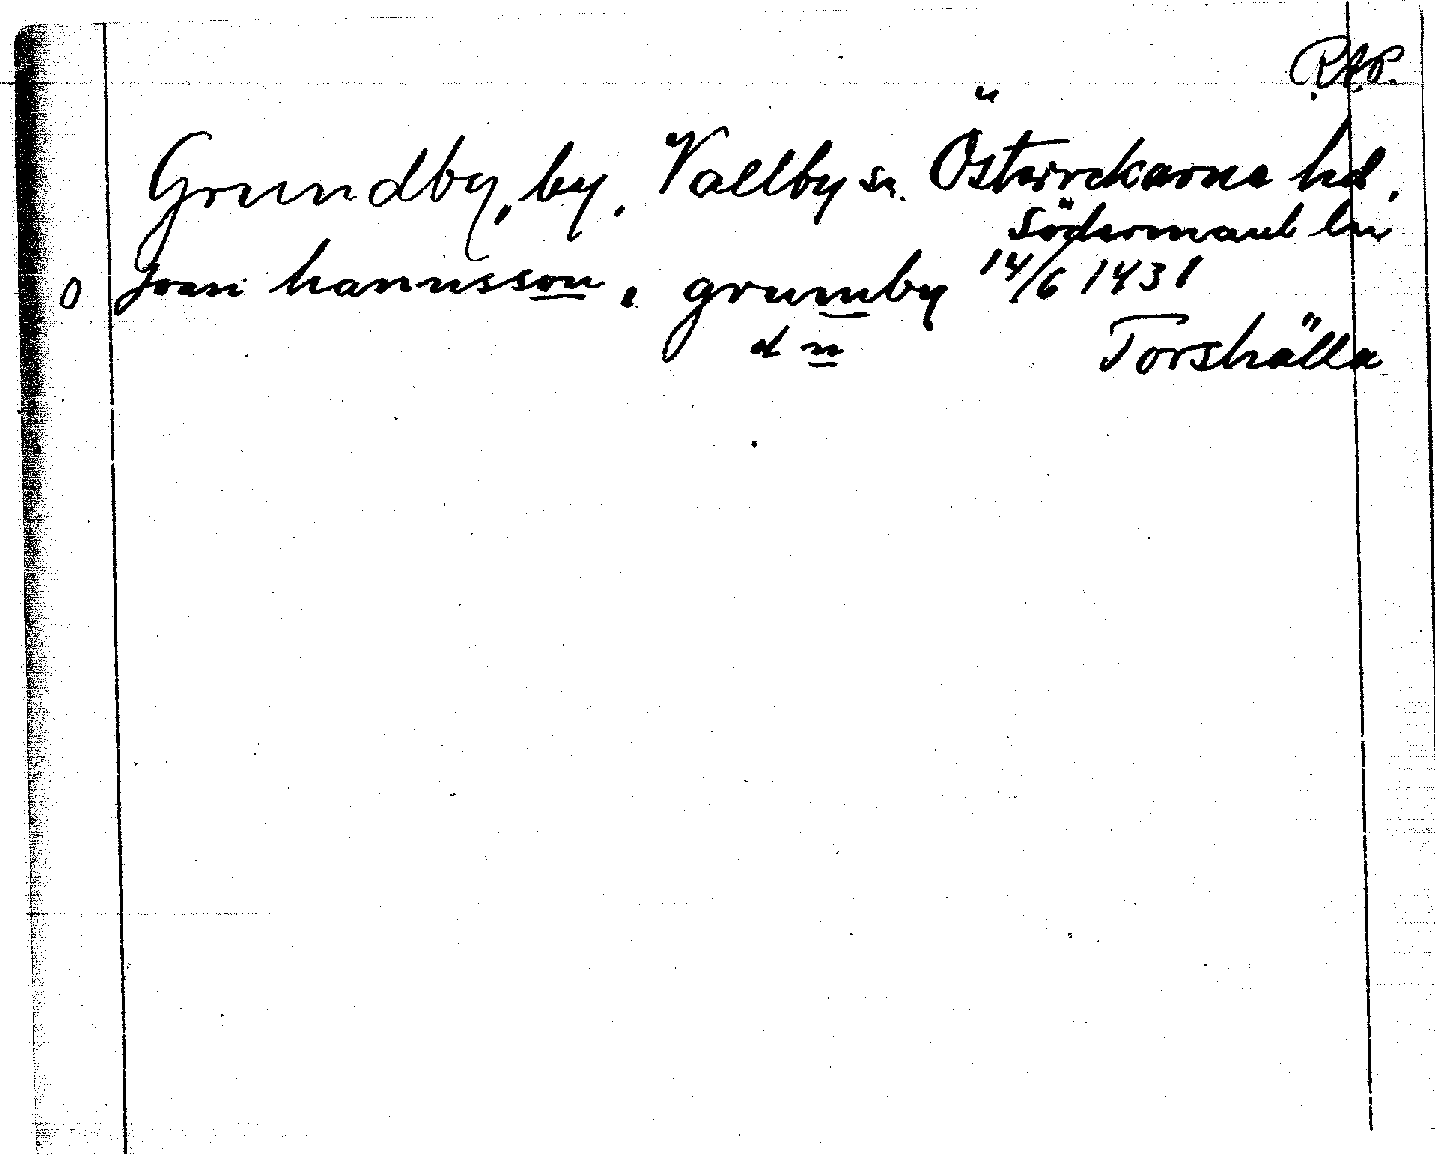 R.A.P.
Grundby, by. Vallby sn. Österrekarne hd.
Södermanl län
0 Joan hannusson, i grumby 14/6 1431
d n Torshälla